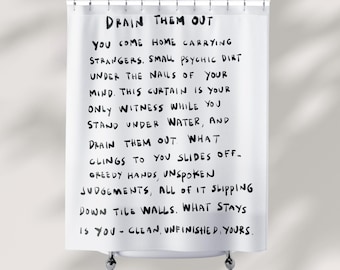 DRAIN THEM OUT
YOU COME HOME CARRYING
STRANGERS. SMALL PSYCHIC DIRT
UNDER THE NAILS OF YOUR
MIND. THIS CURTAIN IS YOUR
ONLY WITNESS WHILE YOU
STAND UNDER WATER, AND
DRAIN THEM OUT. WHAT
CLINGS TO YOU SLIDES OFF-
GREEDY HANDS, UNSPOKEN
JUDGEMENTS, ALL OF IT SLIPPING
DOWN TILE WALLS. WHAT STAYS
IS YOU - CLEAN, UNFINISHED, YOURS.